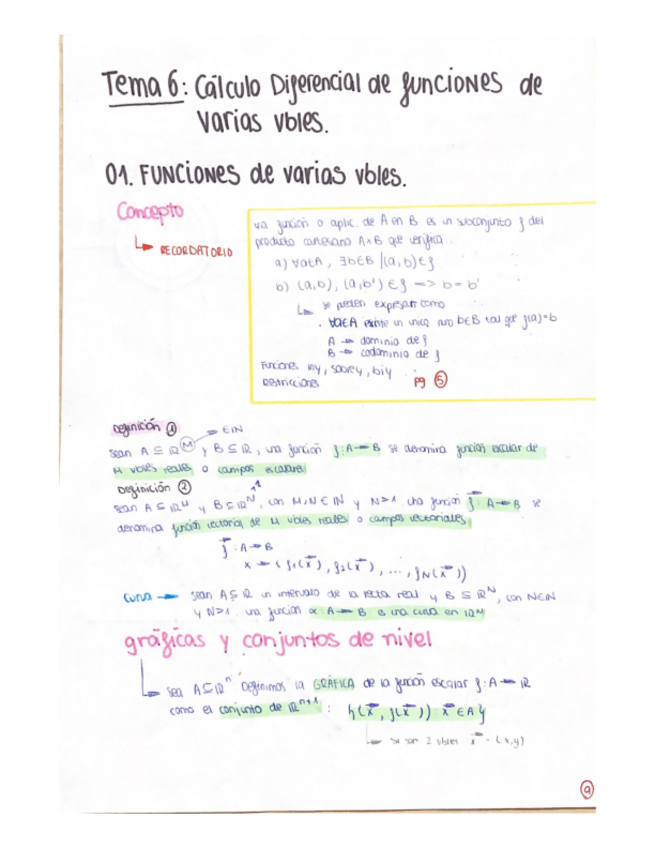 Tema 6: Cálculo Diferencial de funciones de
Varias vbles.
01. FUNCIONES de varias vbles.
Concepto
↳ RECORDATORIO
una función o aplic. de A en B es un subconjunto f del
producto cartesiano A×B que verifica
a) ∀a∈A, ∃b∈B /(a,b)∈f
b) (a,b), (a,b') ∈ f => b = b'
↳ se pueden expresar como
. ∀a∈A existe un unico b∈B tal que f(a)=b
A → dominio de f
B → codominio de f
Funciones iny, sobrey, biy
restricciones pg ⑤
Definición ① → ∈ IN
sean A ⊆ IR^M y B ⊆ IR, una función f: A → B se denomina función escalar de
M vbles reales o campos escalares
Definición ②
sean A ⊆ IR^M y B ⊆ IR^N, con M,N ∈ IN y N>1 una función f⃗: A → B se
denomina función vectorial de M vbles reales o campos vectoriales
f⃗: A → B
x → (f1(x⃗), f2(x⃗), ..., fN(x⃗))
Curva → sean A ⊆ IR un intervalo de la recta real y B ⊆ IR^N, con N∈IN
y N>1. una función α: A → B es una curva en IR^M
gráficas y conjuntos de nivel
↳ sea A ⊆ IR^n Definimos la GRÁFICA de la función escalar f: A → IR
como el conjunto de IR^n+1 : {(x⃗, f(x⃗)) x⃗ ∈ A}
↳ si son 2 vbles x⃗ = (x,y)
⑨